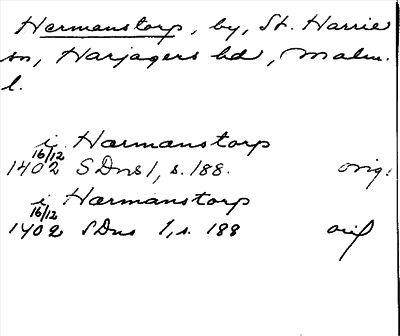 Hermanstorp, by, St. Harrie
sn, Harjagers hd, Malm.
l.
i Harmanstorp
16/12
1402 SDns 1, s. 188. orig.
i Harmanstorp
16/12
1402 SDns 1, s. 188 orig